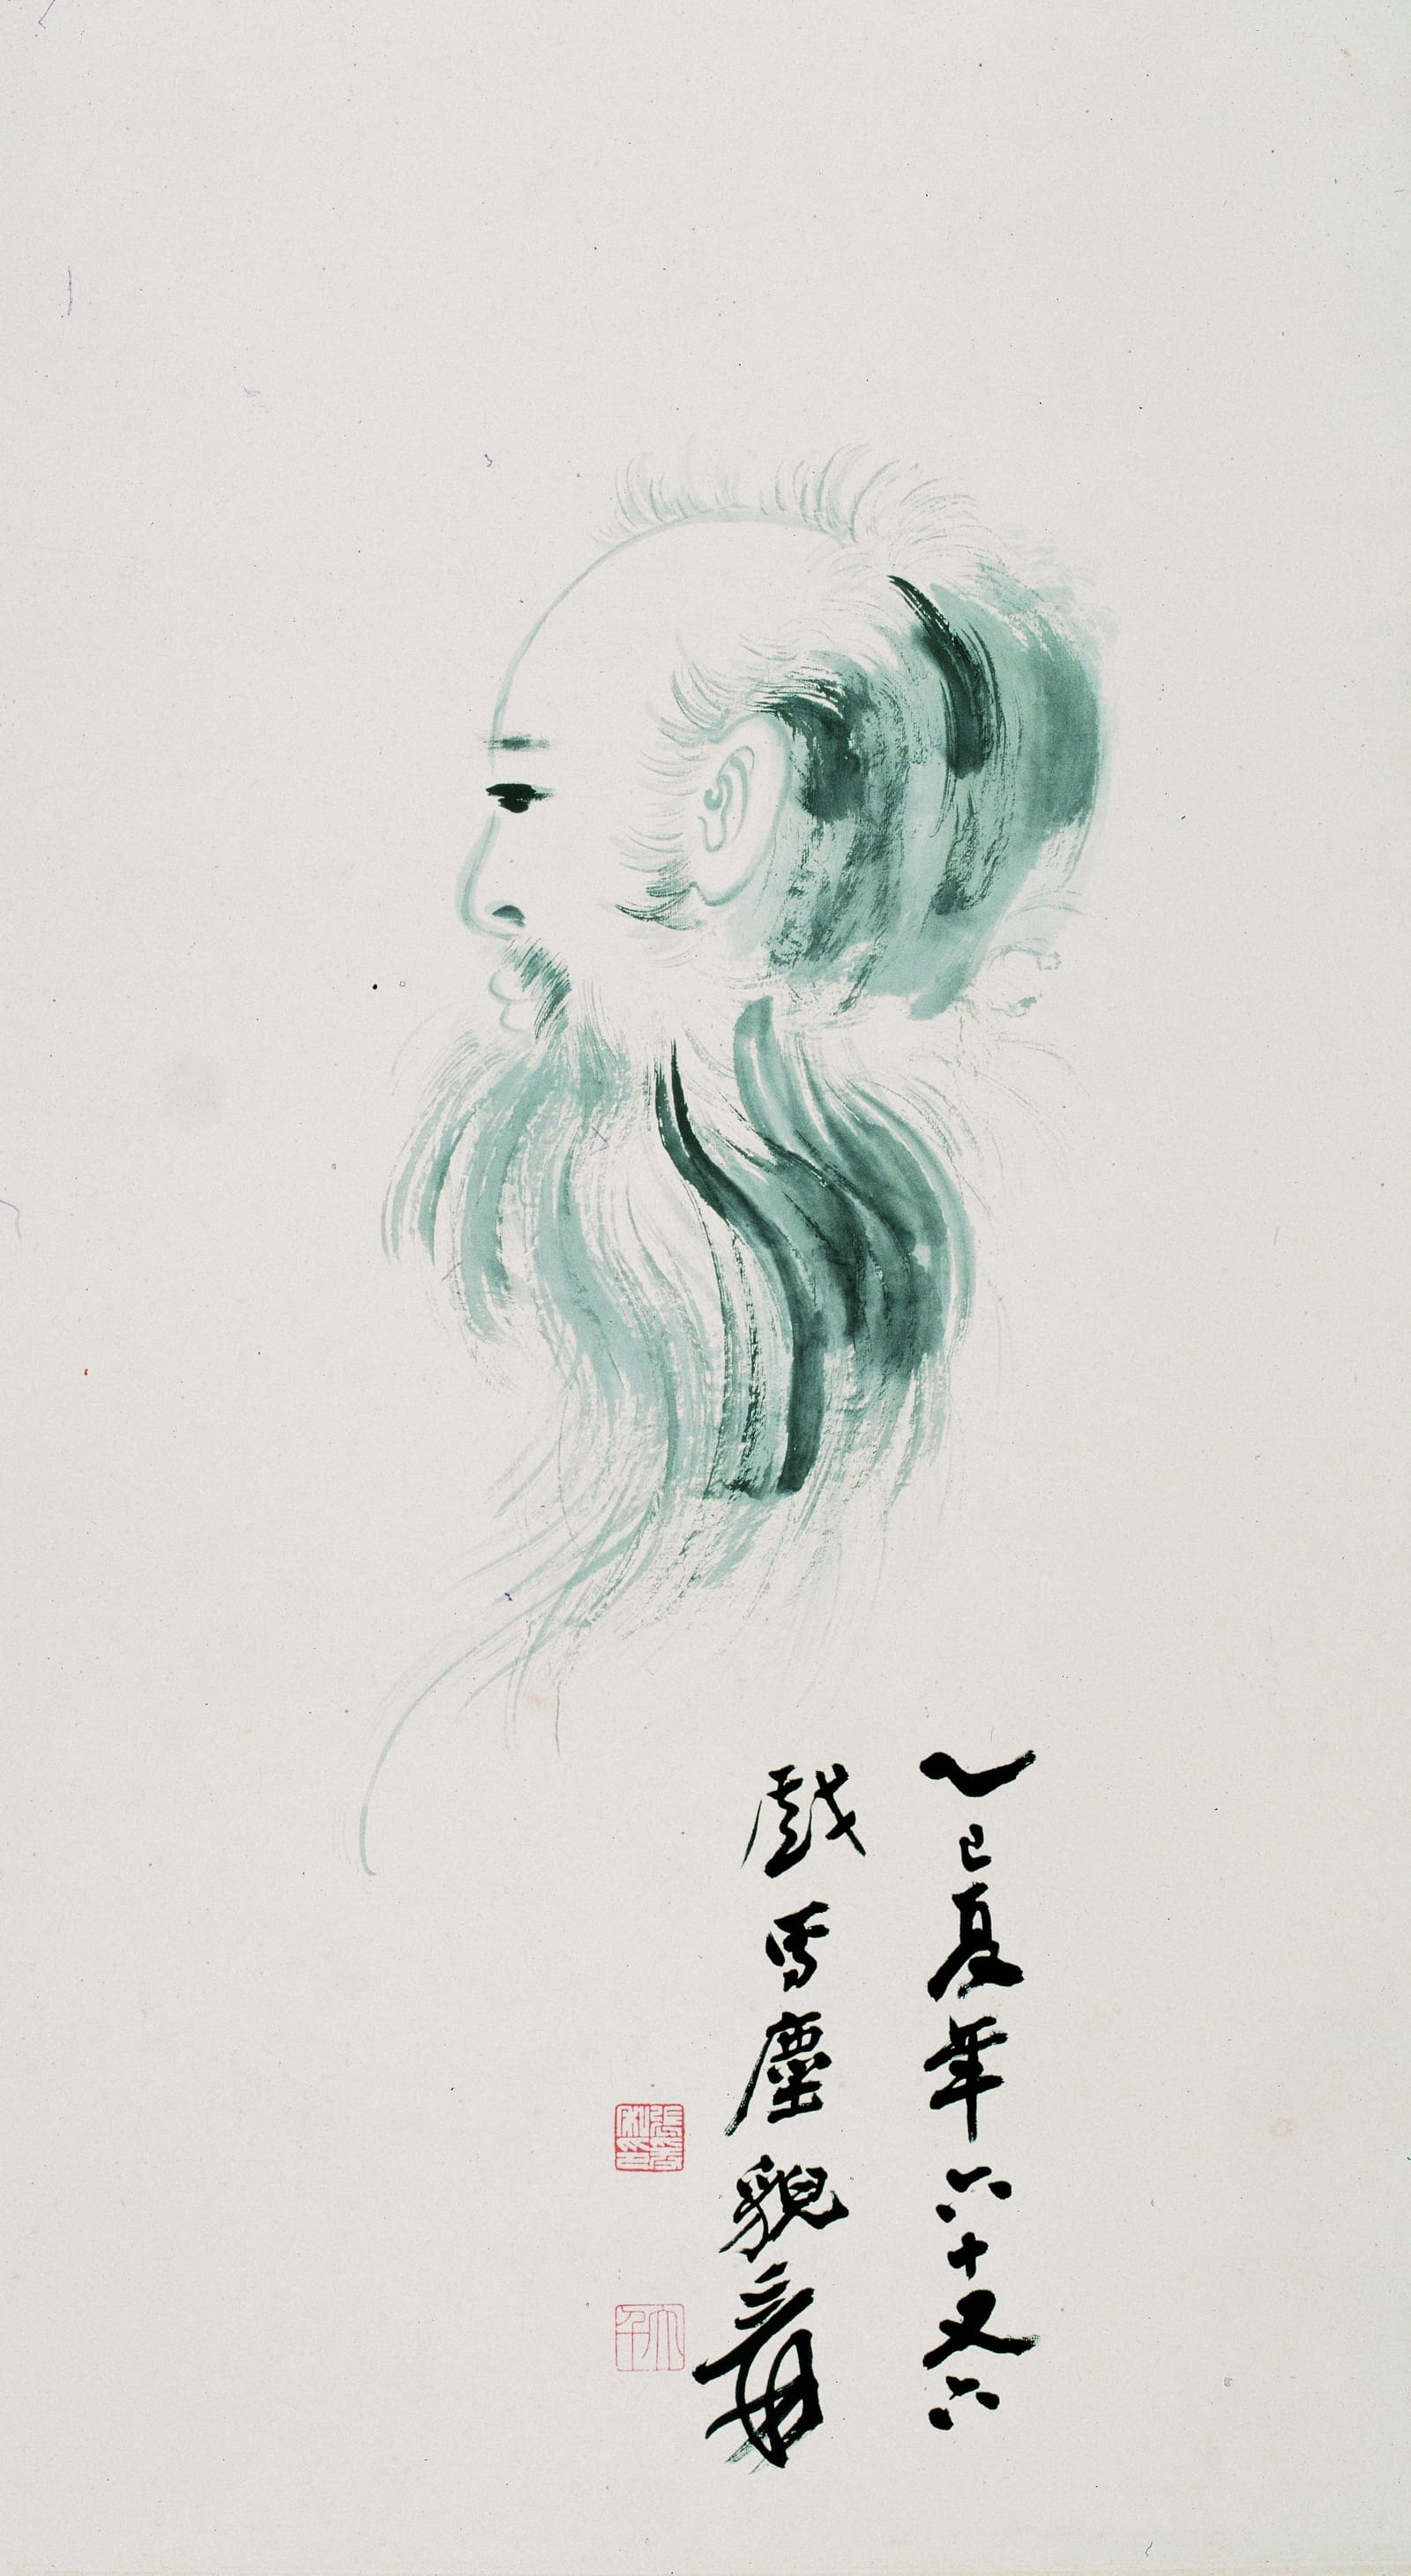 乙巳夏年六十又六
戲寫塵貌爰
張爰私印
大千